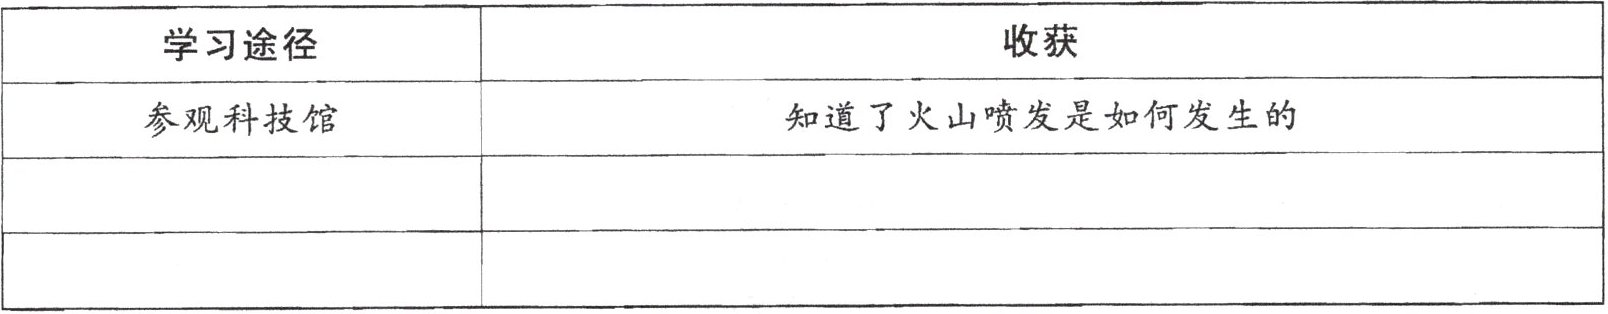 学习途径 收获
参观科技馆 知道了火山喷发是如何发生的